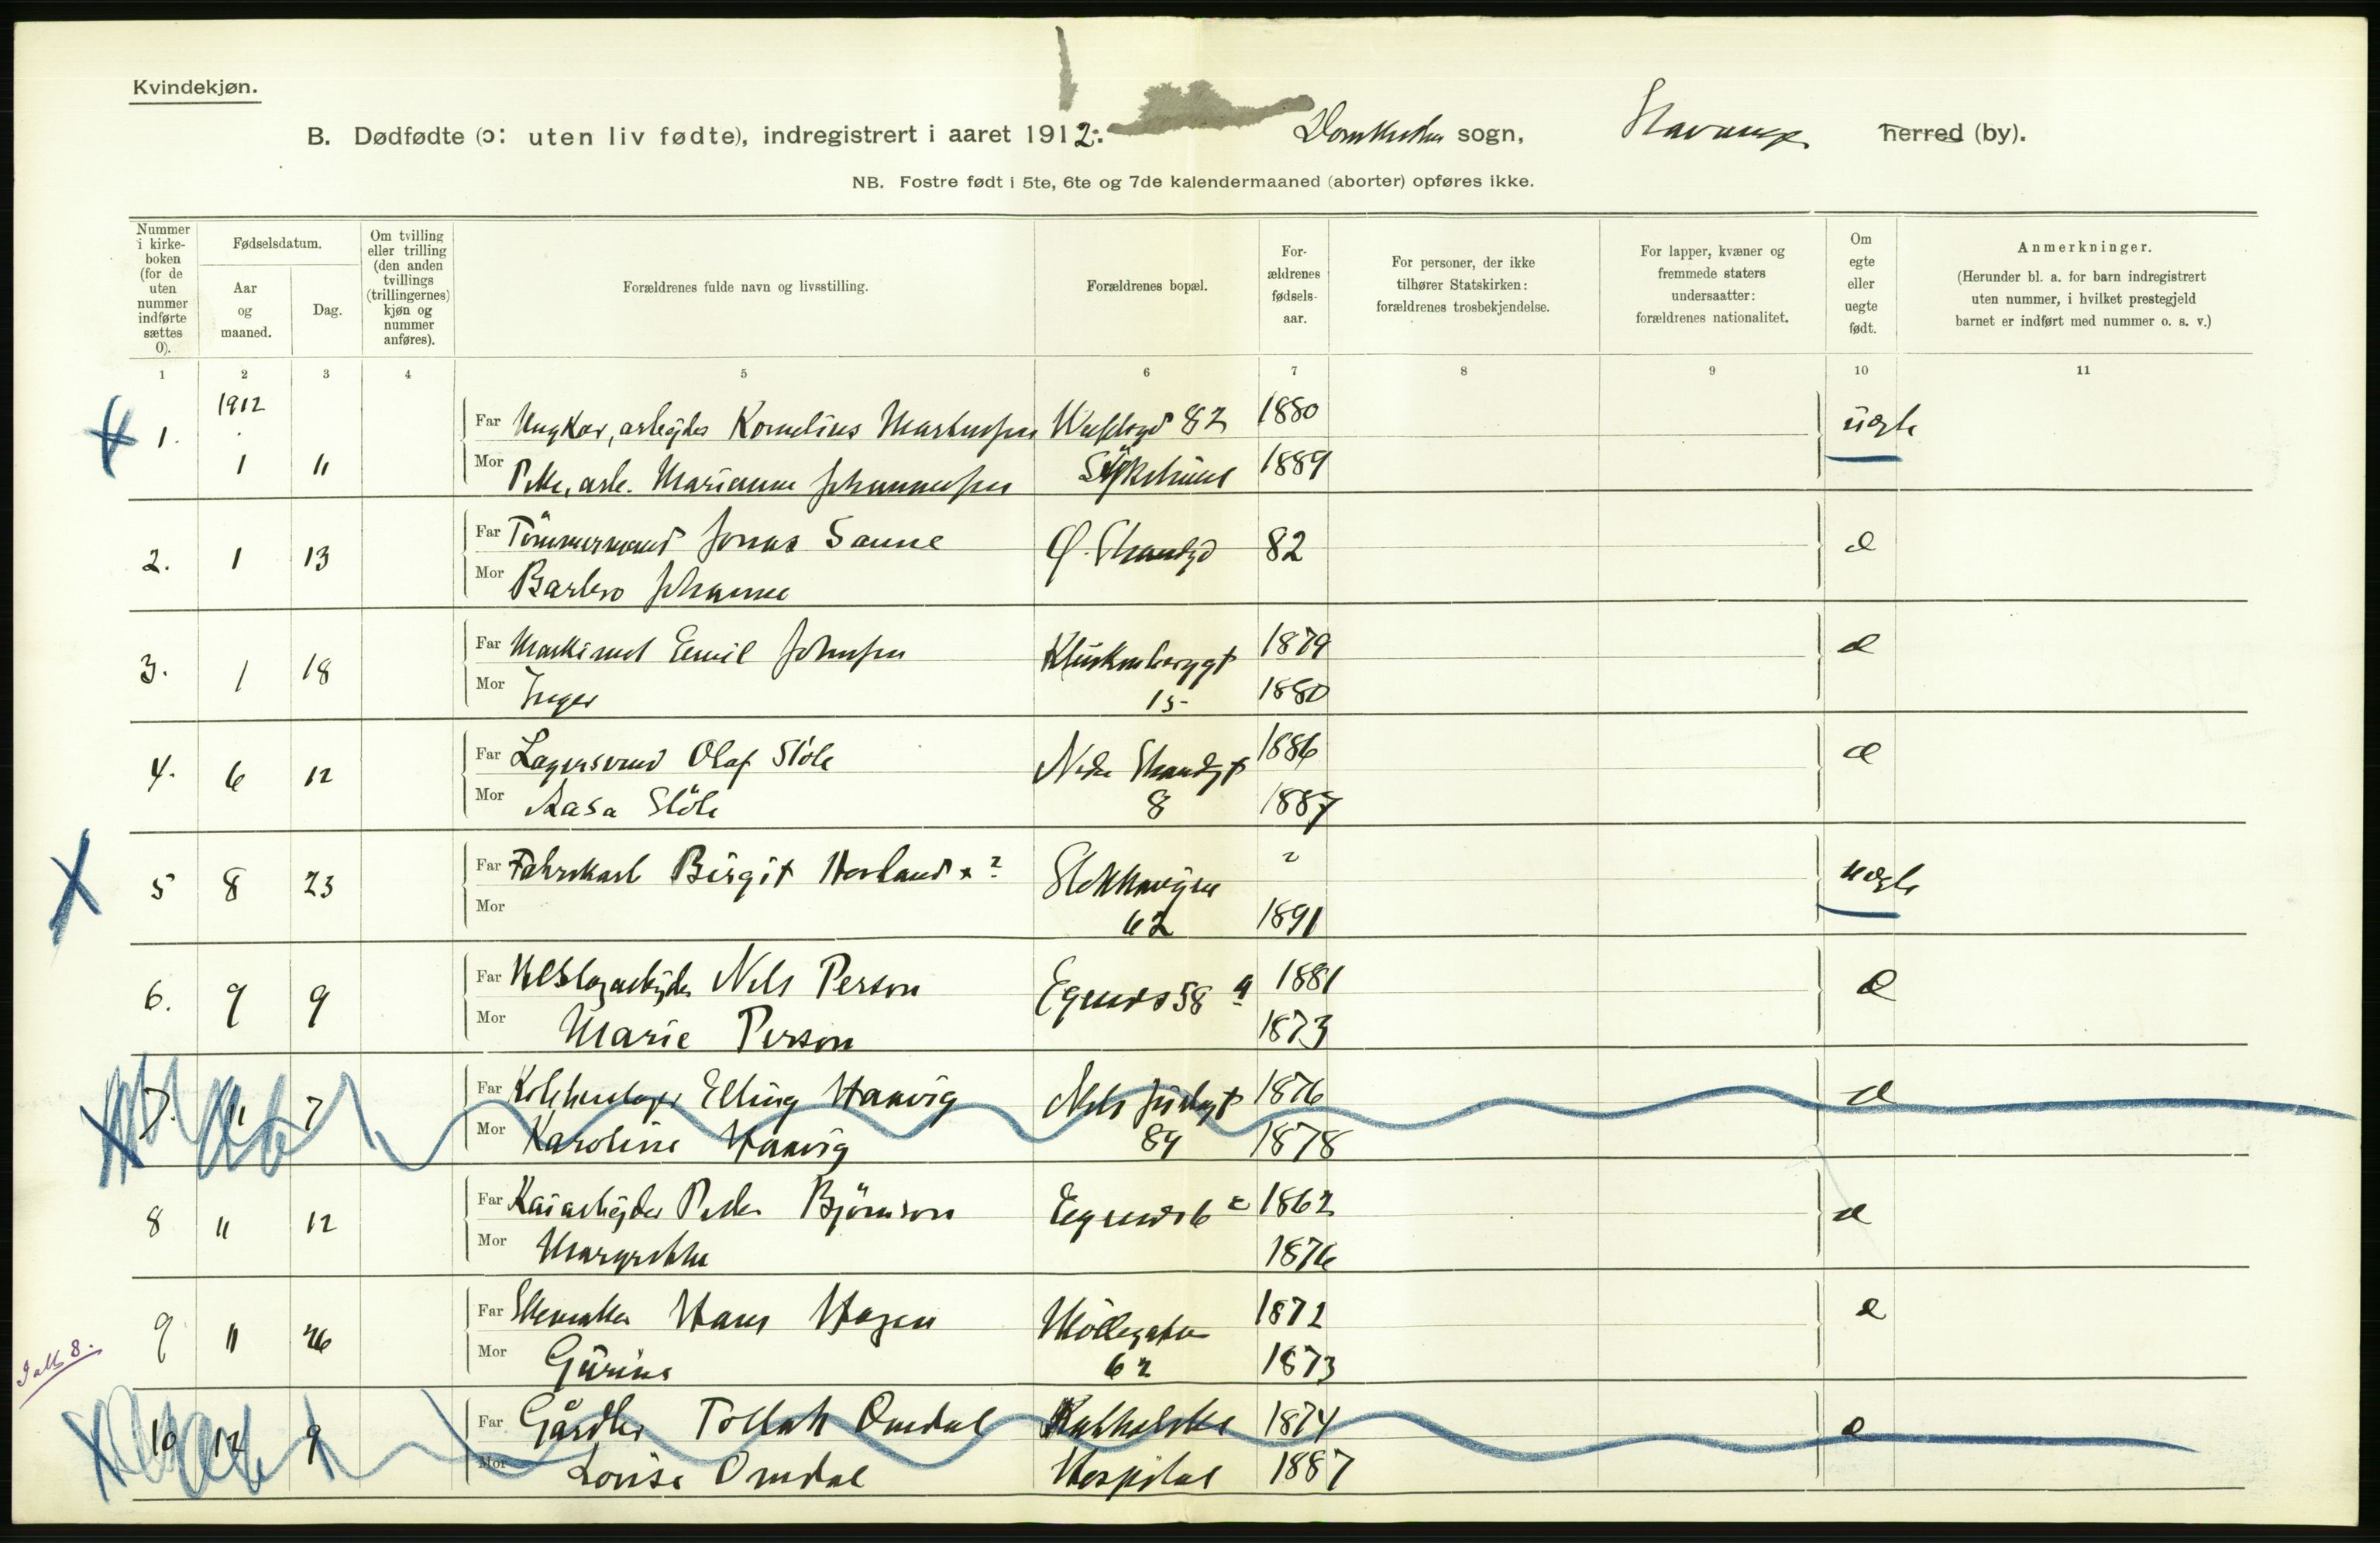 Kvindekjøn.
B. Dødfødte (ɔ: uten liv fødte), indregistrert i aaret 1912. Domkirken sogn, Stavanger herred (by).
NB. Fostre født i 5te, 6te og 7de kalendermaaned (aborter) opføres ikke.
Nummer i kirke-boken (for de uten nummer indførte sættes 0).
Fødselsdatum.
Aar og maaned.
Dag.
Om tvilling eller trilling (den anden tvillings (trillingernes) kjøn og nummer anføres).
Forældrenes fulde navn og livsstilling.
Forældrenes bopæl.
For-ældrenes fødsels-aar.
For personer, der ikke tilhører Statskirken: forældrenes trosbekjendelse.
For lapper, kvæner og fremmede staters undersaatter: forældrenes nationalitet.
Om egte eller uegte født.
Anmerkninger.
(Herunder bl. a. for barn indregistrert uten nummer, i hvilket prestegjeld barnet er indført med nummer o. s. v.)
1 2 3 4 5 6 7 8 9 10 11
1912
1. Far Ungkar, arbejder Kornelius 82 1880 uegte
1 11 Mor Pike, arb. Marianne Johannessen 1889
2. 1 13 Far Tömmermand Jonas Sanne Ø. Strandgd 82 e
Mor Barbro Johanne
3. 1 18 Far Maskinist Emil Johnsen 1879 e
Mor Inger 15 1880
4. 6 12 Far Lagersvend Olaf Stöle Nedre Strandgt 1886 e
Mor Aasa Stöle 8 1887
5 8 23 Far Fabrikarb Birgit Hovland x ? Stokkaveien ? uegte
Mor 62 1891
6. 9 9 Far Nels Person Egenes 58 a 1881 e
Mor Marie Person 1873
7. 11 7 Far Elling Hanvig Nils Juelsgt 1876 e
Mor Karoline Hanvig 84 1878
8 11 12 Far Kaiarbejder Peder Björnson Egenes 6 c 1862 e
Mor Margrethe 1876
9 11 26 Far Hans Hagen Möllegaten 1872 e
Mor Gurine 62 1873
I alt 8.
10 12 9 Far Gårdbr Tollak Omdal Katholske 1874 e
Mor Lovise Omdal Hospital 1887